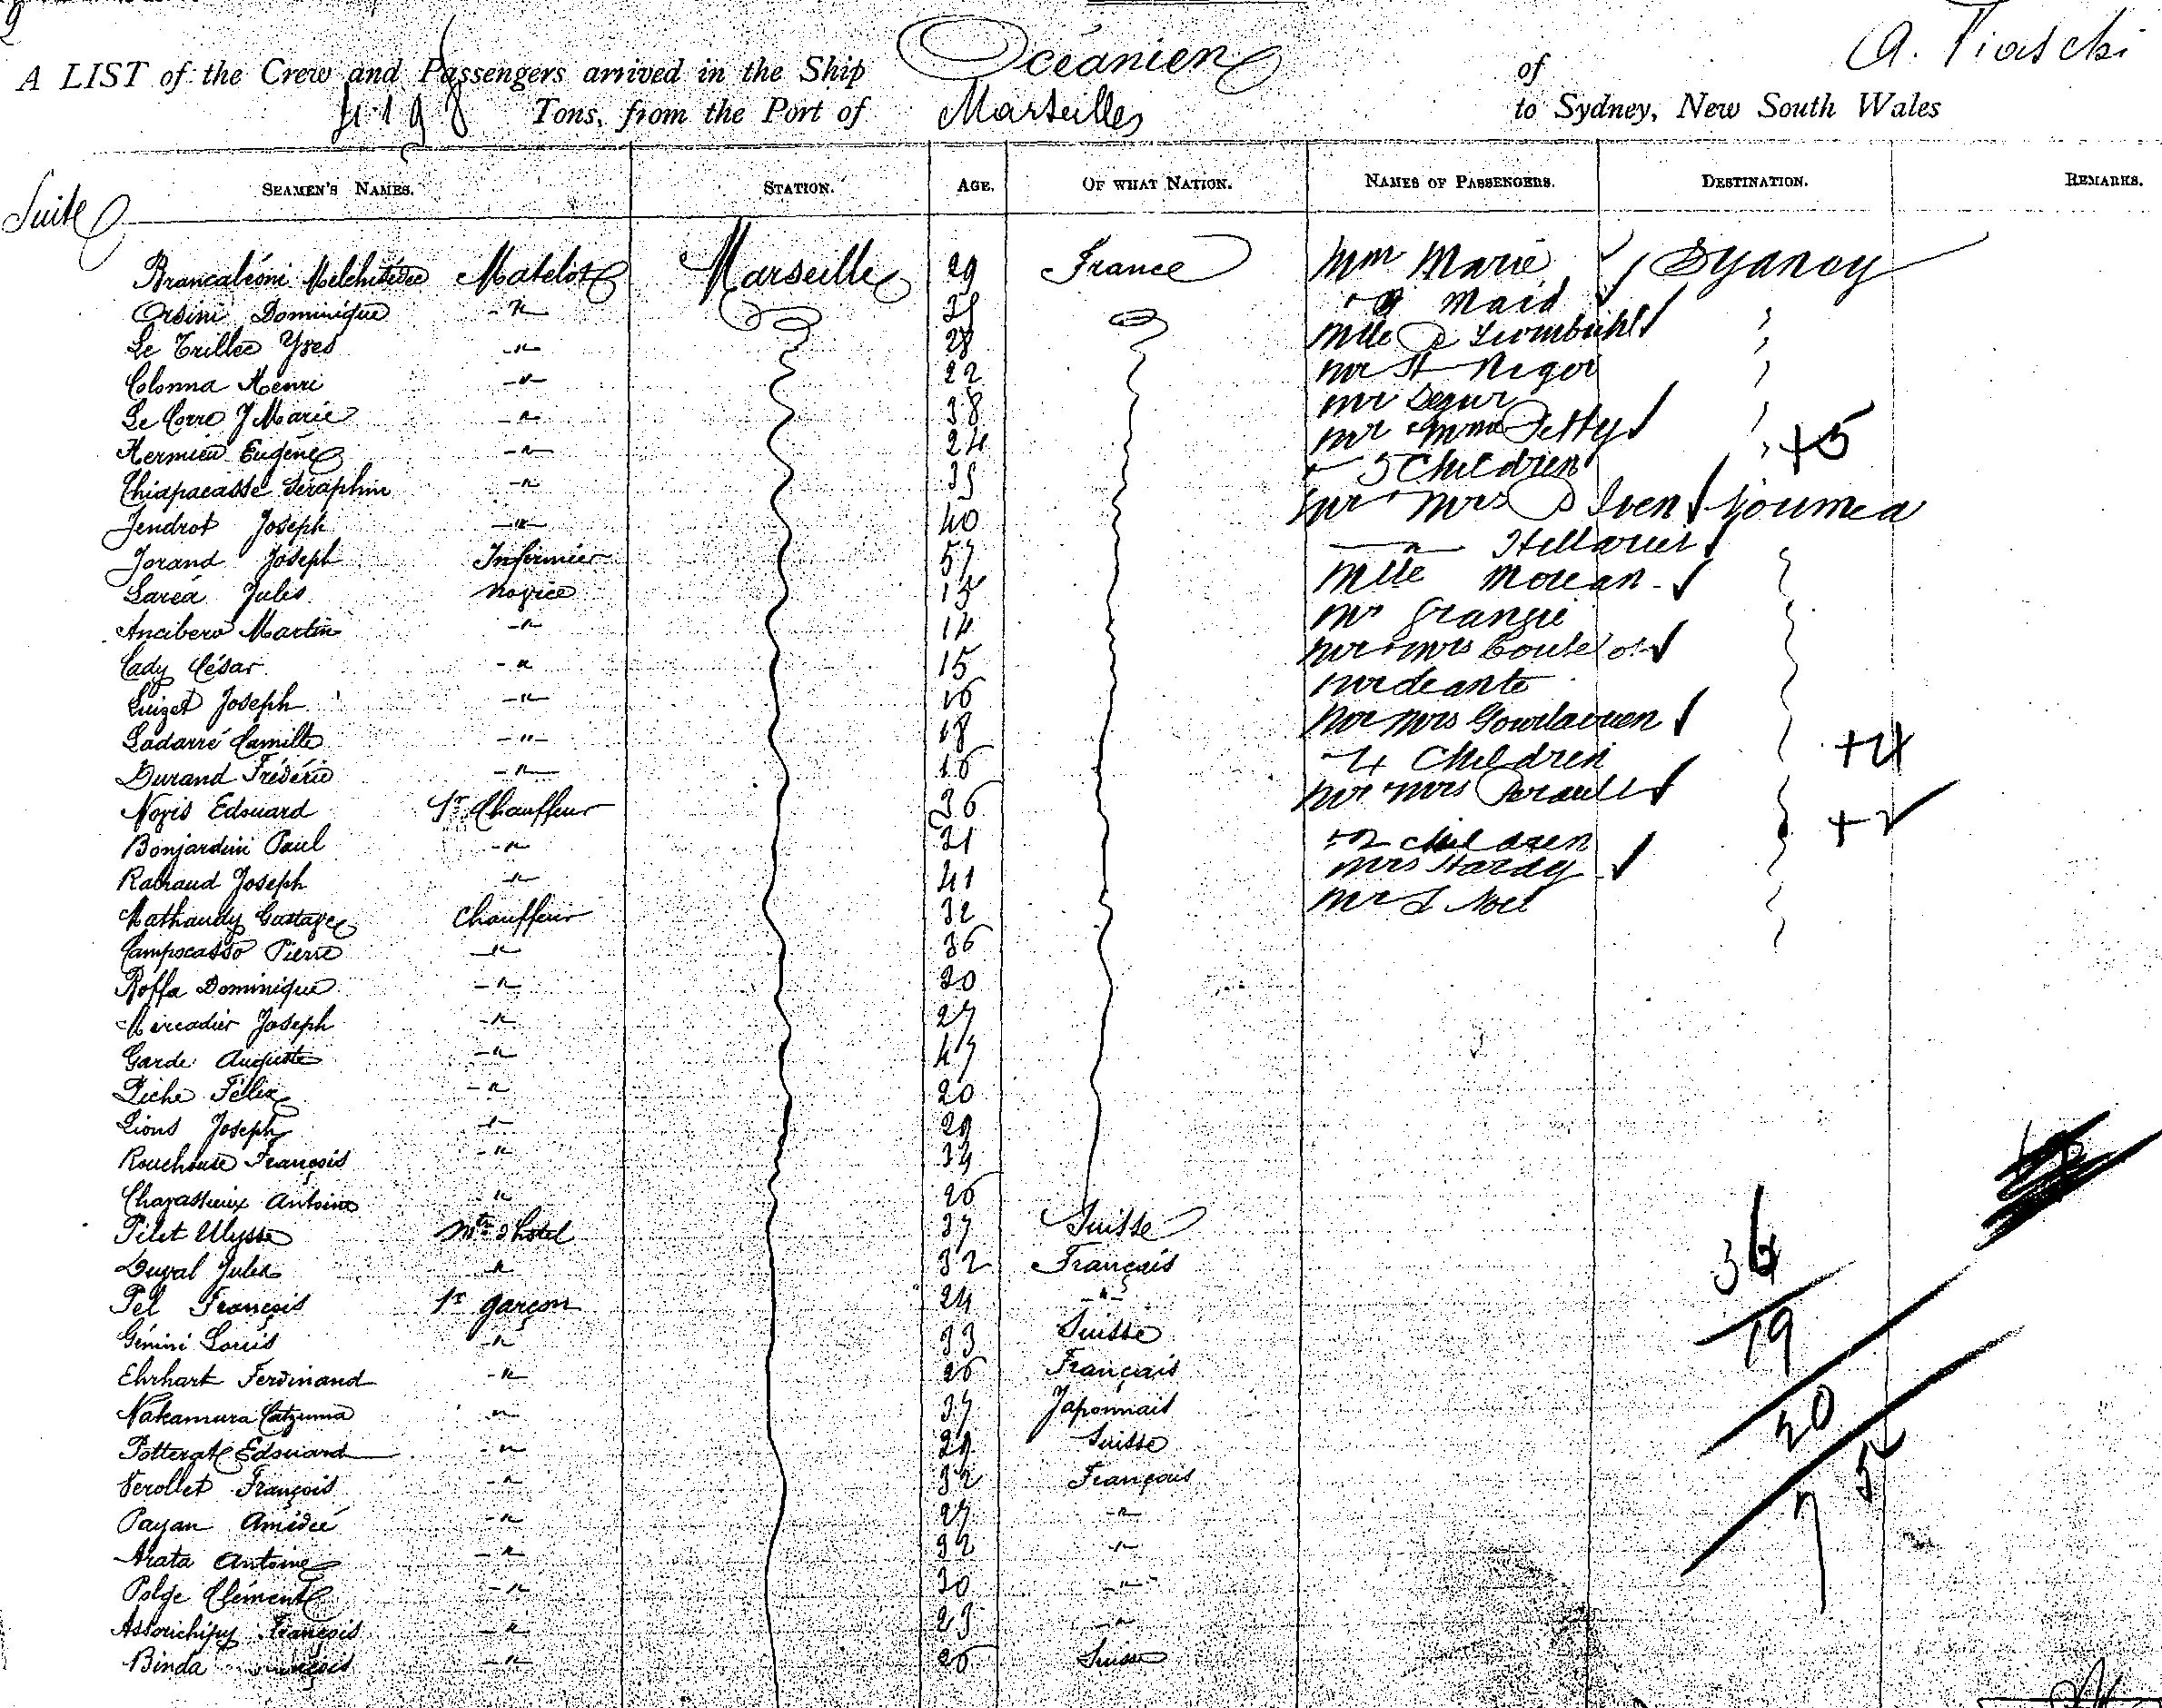 A LIST of the Crew and Passengers arrived in the Ship Océanien of A.
4198 Tons, from the Port of Marseilles to Sydney, New South Wales
Suite
SEAMEN'S NAMES. STATION. AGE. OF WHAT NATION. NAMES OF PASSENGERS. DESTINATION. REMARKS.
Brancaléoni Matelot Marseille 29 France Mme Marie Sydney
Orsini Dominique -"- & Maid
Le Trillec Yves -"- 28 Mlle
Colonna Henri -"- 22 Mr St Niger
Le Corre J Marie -"- 38 Mr Segur
Hermieu Eugène -"- 24 Mr & Mme Petty +5
Séraphin -"- 35 5 Children
Jendrot Joseph -"- 40 Mr & Mrs Iven Noumea
Jorand Joseph Infirmier 57 -"-
Laréa Jules Novice 15 Mlle Morean
Ancibero Martin -"- 14 Mr Grangie
Cady César -"- 15 Mr & Mrs
Luizet Joseph -"- 16 Mr
Ladarré Camille -"- 18 Mr Mrs Gourlaouen
Durand Frédéric -"- 16 4 Children +4
Novis Edouard 1r Chauffeur 36 Mr Mrs
Bonjardini Paul -"- 31 2 children +2
Joseph -"- 41 Mrs Hardy
Mathaudy Gustave Chauffeur 32 Mr L Noel
Campocasso Pierre -"- 36
Roffa Dominique -"- 20
Mercadier Joseph -"- 27
Garde Auguste -"- 47
Piche Félix -"- 20
Lions Joseph -"- 29
Rouchouse François -"- 34
Chavassieux Antoine -"- 26
Pilet Ulysse Mtre d'hotel 37 Suisse
Duval Jules -"- 32 Français
Pel François 1r garçon 24 -"-
Gémini Louis -"- 33 Suisse
Ehrhart Ferdinand -"- 26 Français
Nakamura -"- 37 Japonnais
Potterat Edouard -"- 29 Suisse
Verollet François -"- 32 Français
Payan Amédée -"- 27 -"-
Arata Antoine -"- 32 -"-
Polge Clément -"- 30 -"-
François -"- 23 -"-
Binda François -"- 26 Suisse
36
19
20
5
7